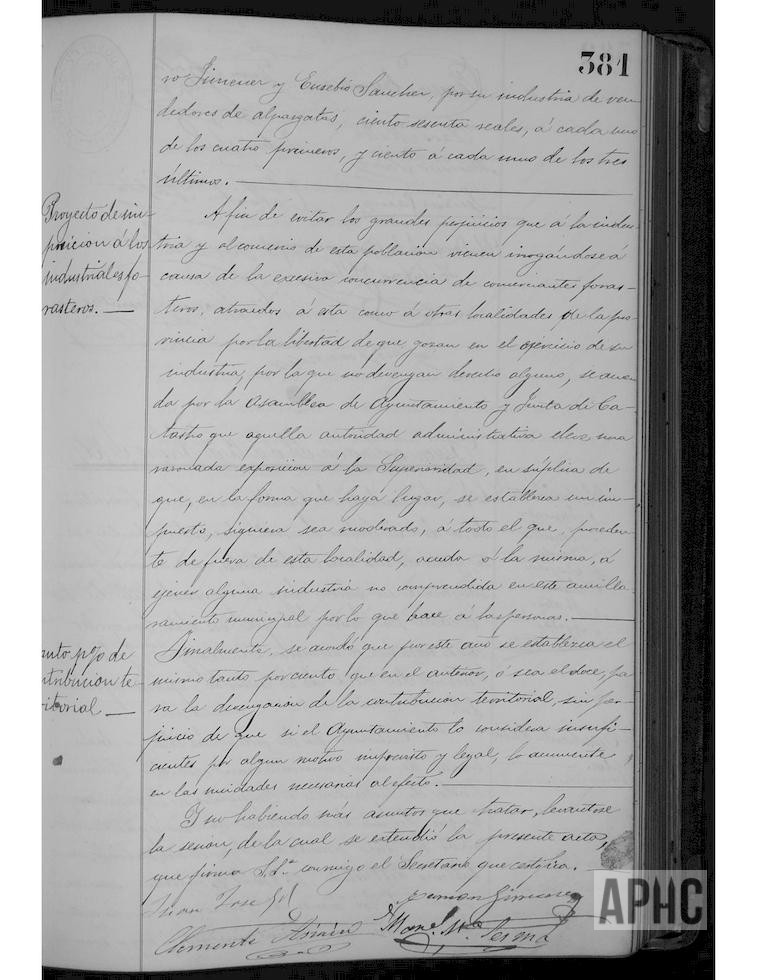 381
no Jimener y Eusebio Sancher, por su industria de ven-
dedores de alpargatas, ciento sesenta reales, á cada uno
de los cuatro primeros, y ciento á cada uno de los tres
últimos. —
Proyecto de im-
posicion á los
industriales fo-
rasteros. —
A fin de evitar los grandes perjuicios que á la indus-
tria y al comercio de esta poblacion vienen irrogándose á
causa de la excesiva concurrencia de comerciantes foras-
teros, atraidos á esta como á otras localidades de la pro-
vincia por la libertad de que gozan en el ejercicio de su
industria, por la que no devengan derecho alguno, se acuer-
da por la Asamblea de Ayuntamiento y Junta de Ca-
tastro que aquella autoridad administrativa eleve una
razonada exposicion á la Superioridad, en súplica de
que, en la forma que haya lugar, se establezca un im-
puesto, siquiera sea moderado, á todo el que, proceden-
te de fuera de esta localidad, acuda á la misma, á
ejercer alguna industria no comprendida en este amilla-
ramiento municipal por lo que hace á las personas. —
anto p% de
ntribucion te-
ritorial —
Finalmente, se acordó que por este año se establezca el
mismo tanto por ciento que en el anterior, ó sea el doce, pa-
ra la devengacion de la contribucion territorial, sin per-
juicio de que si el Ayuntamiento lo considera insufi-
cientes por algun motivo imprevisto y legal, lo aumente
en las unidades necesarias al efecto. —
Y no habiendo más asuntos que tratar, levantose
la sesion, de la cual se extendió la presente acta,
que firma S.S.ª conmigo el Secretario que certifica.
Juan Jose Gil
Ramon Gimenez
Clemente
Man.l M.a Serma
APHC